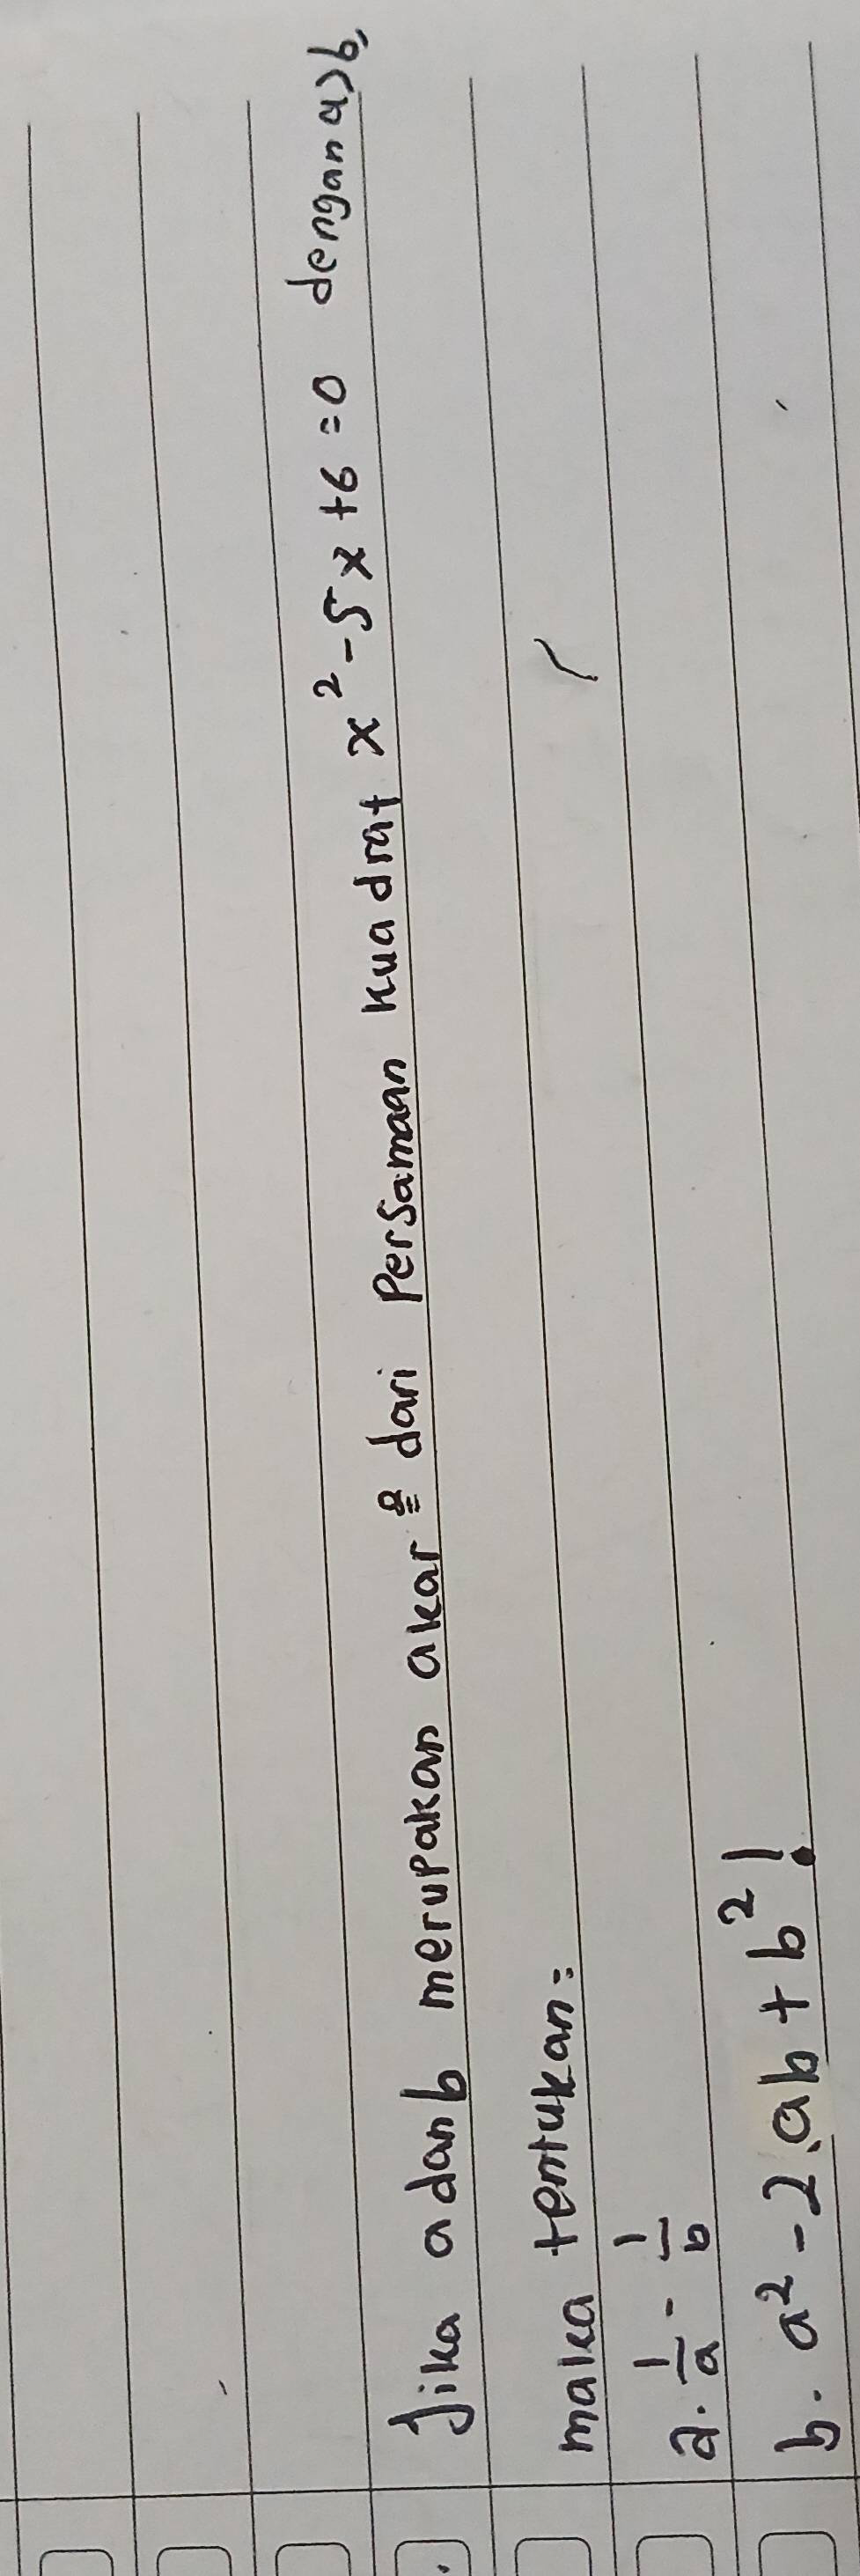 Jika a dan b merupakan akar² dari Persamaan kuadrat x² - 5x + 6 = 0 dengan a > b,
maka tentukan:
a. 1/a - 1/b
b. a² - 2.ab + b² !